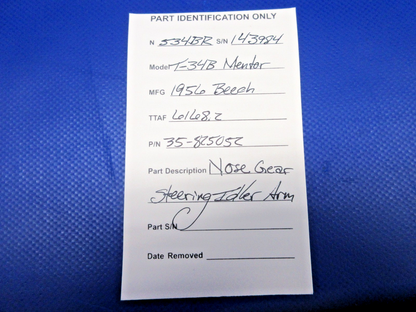 PART IDENTIFICATION ONLY
N 534BR S/N 143984
Model T-34B Mentor
MFG 1956 Beech
TTAF 6168.2
P/N 35-825052
Part Description Nose Gear
Steering Idler Arm
Part S/N
Date Removed